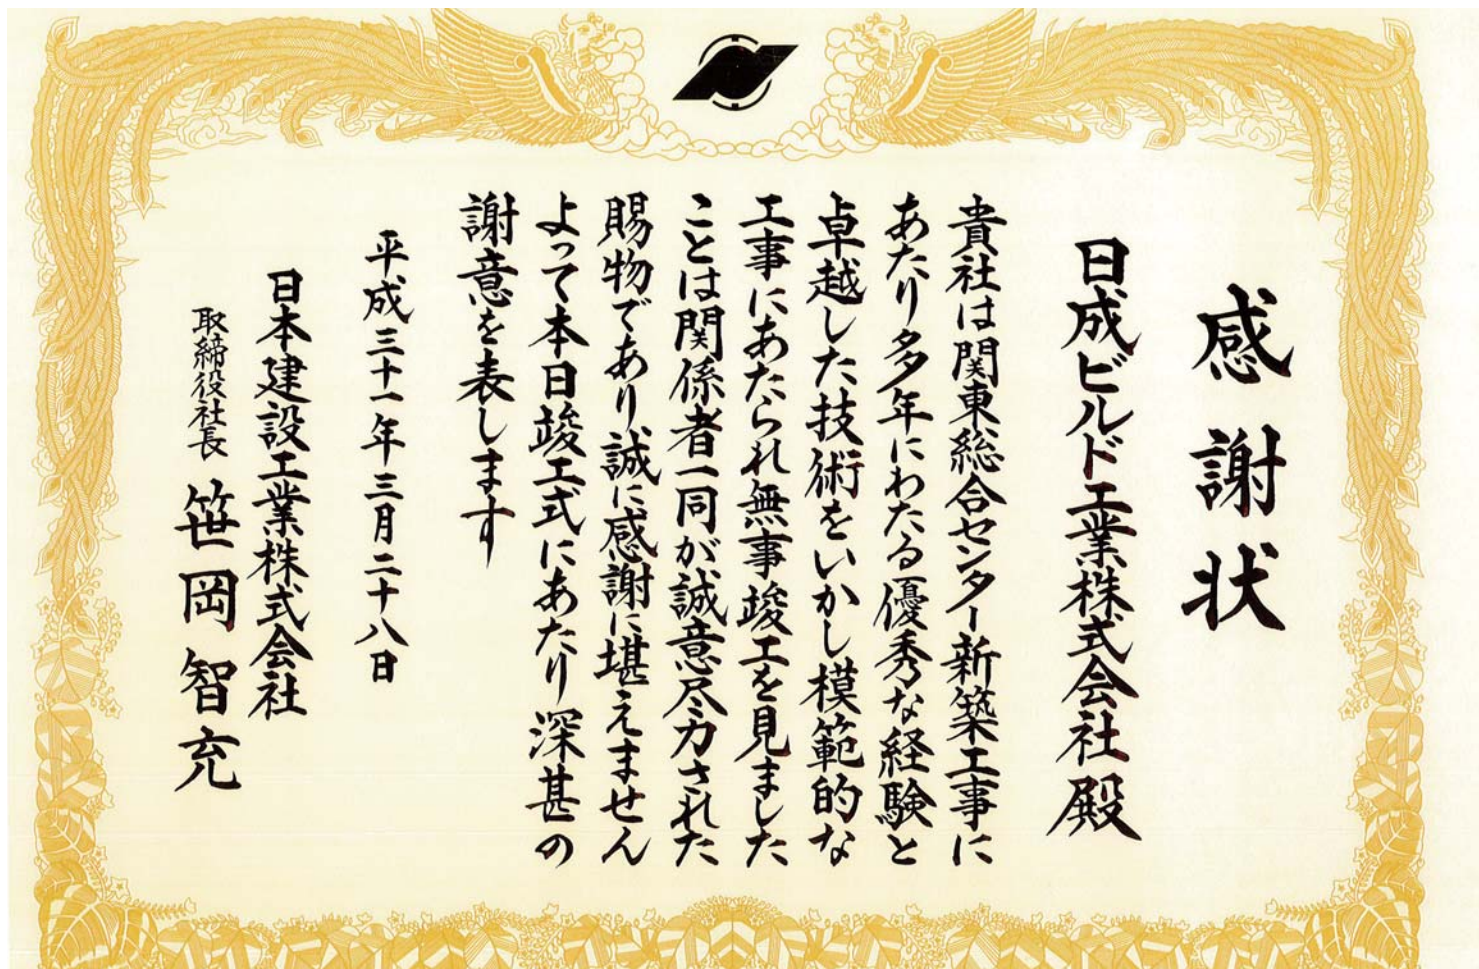 感謝状
日成ビルド工業株式会社殿
貴社は関東総合センター新築工事に
あたり多年にわたる優秀な経験と
卓越した技術をいかし模範的な
工事にあたられ無事竣工を見ました
ことは関係者一同が誠意尽力された
賜物であり誠に感謝に堪えません
よって本日竣工式にあたり深甚の
謝意を表します
平成三十一年三月二十八日
日本建設工業株式会社
取締役社長 笹岡智充